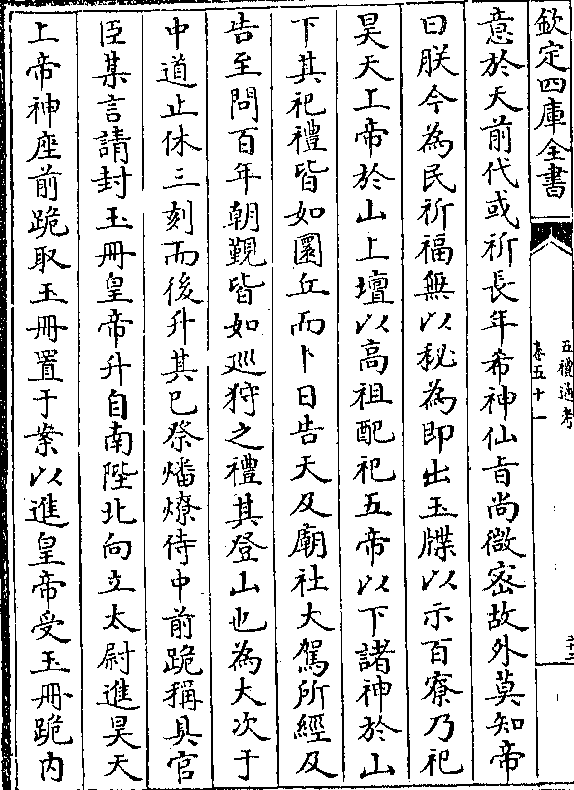 欽定四庫全書
五禮通考
卷五十一
意於天前代或祈長年希神仙旨尚微密故外莫知帝
曰朕今為民祈福無以秘為即出玉牒以示百寮乃祀
昊天上帝於山上壇以高祖配祀五帝以下諸神於山
下其祀禮皆如圜丘而卜日告天及廟社大駕所經及
告至問百年朝覲皆如巡狩之禮其登山也為大次于
中道止休三刻而後升其已祭燔燎侍中前跪稱具官
臣某言請封玉冊皇帝升自南陛北向立太尉進昊天
上帝神座前跪取玉冊置于案以進皇帝受玉冊跪内